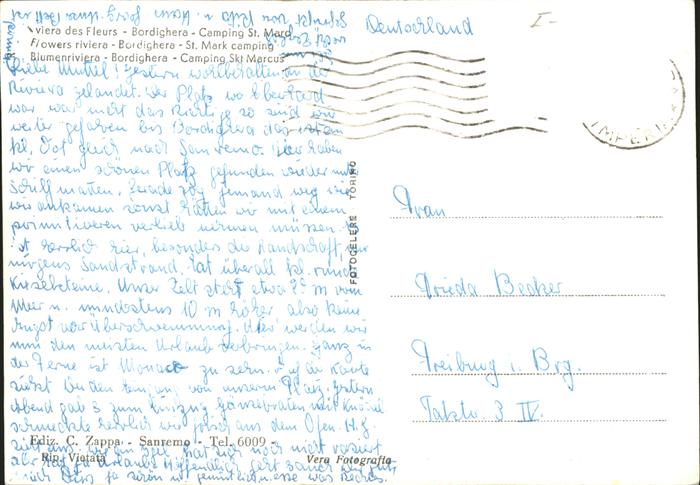 Deutschland
I-
Riviera des Fleurs - Bordighera - Camping St. Mard
Flowers riviera - Bordighera - St. Mark camping
Blumenriviera - Bordighera - Camping Skt Marcus
IMPERIA
Liebe Mutti! Gestern wohlbehalten an der
Riviera gelandet. Der Platz wo Eberhard
war war nicht das Richtige so sind wir
weiter gefahren bis Bordighera das ist ein
kl. Ort gleich nach Sanremo. Hier haben
wir einen schönen Platz gefunden wieder mit
Schilfmatten. Gerade zog jemand weg wie
wir ankamen sonst hätten wir mit einem
primitiveren verlieb nehmen müssen. Es
ist herrlich hier, besonders die Landschaft, nur
nirgens Sandstrand. Hat überall kl. runde
Kieselsteine. Unser Zelt steht etwa m vom
Meer u. mindestens 10 m höher, also keine
Angst vor Überschwemmung. Hier werden wir
nun den meisten Urlaub verbringen. Ganz in
der Ferne ist Monaco zu sehn. Auf der Karte
siehst Du den Eingang von unserem Platz. Gestern
Abend gab's zum Einzug Gänsebraten mit Knödel
schmeckte herrlich wie frisch aus dem Ofen. H.G.
FOTOCELERE TORINO
Frau
Frieda Becker
Freiburg i. Brg.
3 IV.
Ediz. C. Zappa - Sanremo - Tel. 6009 -
Rip. Vietata
Vera Fotografia